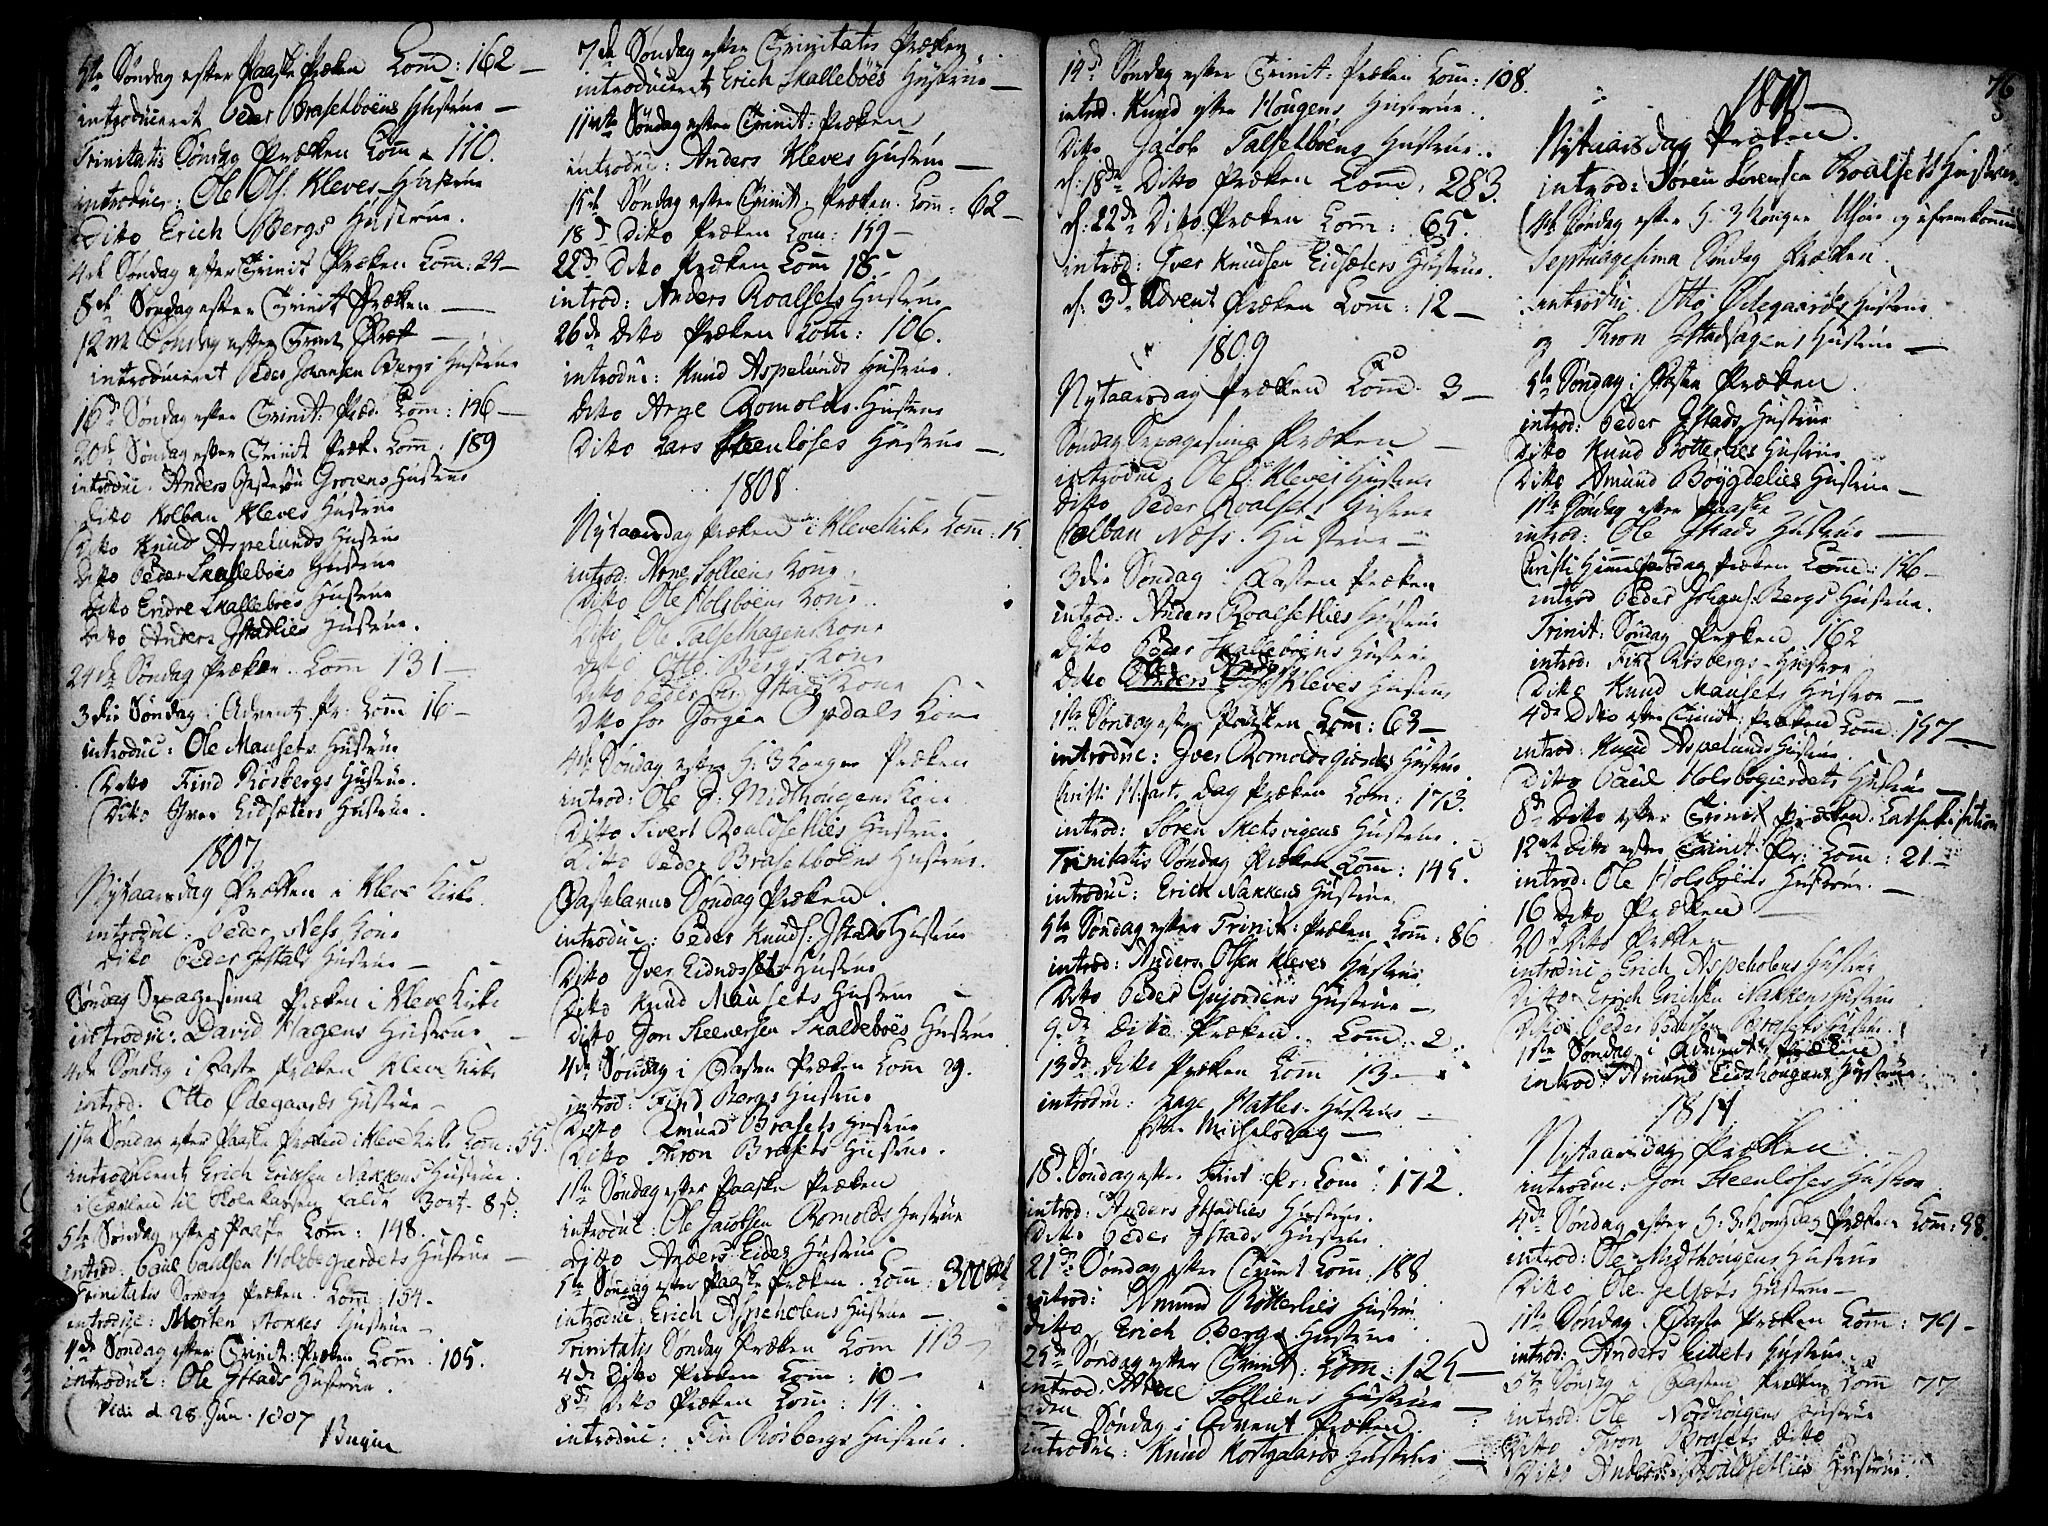 5te Søndag efter Paaske Præken Com: 162 —
introduceret Peder Brasetboëns Hustrue —
Trinitatis Søndag Præken Com 110.
introduc: Ole Ols: Kleves Hustrue
Ditto Erich Bergs Hustrue.
4de Søndag efter Trinit Præken Com: 24 —
8de Søndag efter Trinit Præken —
12te Søndag efter Trinit Præk —
introduceret Peder Johansen Bergs Hustrue
16de Søndag efter Trinit: Præd. Com: 136 —
20de Søndag efter Trinit Præk. Com: 189
introduc. Anders Grovens Hustrue
Ditto Kolban Kleves Hustrue
Ditto Knud Aspelunds Hustrue
Ditto Peder Skalleboes Hustrue
Ditto Endre Skalleboes Hustrue
Ditto Anders Istadlies Hustrue.
24de Søndag Præken. Com 131 —
3die Søndag i Advent Pr: Com 16 —
introduc: Ole Mausets Hustrue
Ditto Find Rösbergs Hustrue.
Ditto Iver Eidsæters Hustrue.
1807
Nytaarsdag Præken i Kleve Kirke.
introduc: Peder Ness Kone
Ditto Peder Istads Hustrue —
Søndag Sexagesima Præken i Kleve Kirke
introduc: David Hagens Hustrue
4de Søndag i Faste Præken Kleve Kirke
introd: Otto Ødegaards Hustrue —
1ste Søndag efter Paaske Præken i Kleve Kirke Com: 55.
introduceret Erich Erichsen Nakkens Hustrue.
5te Søndag efter Paaske Com: 148.
introd: Paul Paulsen Holsbøgjerdets Hustrue —
Trinitatis Søndag Præken. Com: 154 —
introduc: Morten Stokkes Hustrue —
4de Søndag efter Trinit: Præken Com: 105.
introduc: Ole Istads Hustrue.
Vidi d 28 Jun. 1807
Bugge
7de Søndag efter Trinitatis Præken
introduceret Erich Skalleböes Hustrue —
11te Søndag efter Trinit: Præken
introduc: Anders Kleves Hustrue —
15de Søndag efter Trinit: Præken. Com: 62 —
18d Ditto Præken Com: 159 —
22de Ditto Præken Com 18.
introd: Anders Roalsets Hustrue
26de Ditto Præken Com: 106.
introduc: Knud Aspelunds Hustrue.
Ditto Arne Romolds Hustrue
Ditto Lars Steenløses Hustrue —
1808.
Nytaarsdag Præken i Kleve Kirke Com: 15.
introd: Arne Solliens Kone.
Ditto Ole Holsboens Kone.
Ditto Ole Talsethagens Kone
Ditto Otto Bergs Kone
Ditto Peder Istads Kone
Ditto Jørgen Opdals Kone
4de Søndag efter H: 3 Konger Præken
introd: Ole P: Midthougens Kone
Ditto Sivert Roaldsetlies Hustrue
Ditto Peder Brasetboens Hustrue.
Fastelavns Søndag Præken.
introduc: Peder Knuds: Istads Hustrue
Ditto Iver Eidnessets Hustrue
Ditto Knud Mausets Hustrue
Ditto Jon Steenersen Skaldeboës Hustrue
4de Søndag i Fasten Præken Com 29.
introd: Find Bergs Hustrue
Ditto Amund Brasets Hustrue
Ditto Thron Brasets Hustrue.
1ste Søndag efter Paaske Præken
introduc: Ole Jacobsen Romolds Hustrue
Ditto Anders Eides Hustrue
5te Søndag efter Paaske Præken. Com: 300
introduc: Erich Aspeholens Hustrue —
Trinitatis Søndag Præken Com 113 —
4de Ditto Præken Com: 10 —
8de Ditto Præken Com: 14.
introduc: Fin Rösbergs Hustrue.
14d Søndag efter Trinit: Præken Com: 108.
introd. Knud Hougens Hustrue.
Ditto Jacob Talsetboens Hustrue.
d: 18de Ditto Præken Com: 283.
d: 22de Ditto Præken Com: 65.
introd: Iver Knudsen Eidsæters Hustrue.
d: 3d Advent Præken Com: 12 —
1809
Nytaarsdag Præken Com 3 —
Søndag Sexagesima Præken —
introduc Ole O: Kleves Hustrue
Ditto Peder Roalsets Hustrue
Colban Ness. Hustrue —
3die Søndag i Fasten Præken
introd: Anders Roalsetlies Hustrue
Ditto Peder Skalleboens Hustrue
Ditto Anders Kleves Hustrue
1ste Søndag efter Paasken Com: 63 —
introduc: Iver Romoldsgierdes Hustrue.
Christi H:farts dag Præken Com: 173.
introd: Soren Sketsvigens Hustrue.
Trinitatis Søndag Præken Com: 145.
introduc: Erich Nakkens Hustrue
5te Søndag efter Trinit: Præken Com: 86
introd: Anders Olsen Kleves Hustrue
Ditto Peder Gujordens Hustrue —
9de Ditto Præken. Com: 2.
13de Ditto Præken Com 13 —
introduc: Hustrue —
Michelsdag —
18d Søndag efter Trint Pr: Com: 172.
introd: Anders Istadlies Hustrue.
Ditto Peder Istads Hustrue
21de Søndag efter Trinit Com: 188.
introd: Amund Rötterlies Hustrue
Ditto Erich Bergs Hustrue
25de Søndag efter Trinit: Com: 125 —
introd. Arne Solliens Hustrue —
2den Søndag i Advent Præken.
introduc: Knud Kortgaards Hustrue —
76
1810
Nytaarsdag Præken.
introd: Søren Sørensen Roalsets Hustrue
4de Søndag efter H: 3 Konger
Septuagesima Søndag Præken.
introduc: Otto Ødegaards Hustrue
og Thron Istadhagens Hustrue —
5te Søndag i Fasten Præken.
introd: Peder Istads Hustrue
Ditto Knud Rötterlies Hustrue
Ditto Amund Böygdelies Hustrue —
1ste Søndag efter Paaske
introd: Ole Istads Hustrue —
Christi Himmelfartsdag Præken Com: 156 —
introd Peder Johans: Bergs Hustrue.
Trinit: Søndag Præken 162
introd: Find Rösbergs Hustrue
Ditto Knud Mausets Hustrue —
4de Ditto efter Trinit: Præken Com: 157 —
introd: Knud Aspelunds Hustrue.
Ditto Paul Holsbøgierdets Hustrue —
8de Ditto efter Trinit Præken. Cathekisation
12te Ditto efter Trinit: Pr: Com: 21 —
introd: Ole Holsböens Hustrue. —
16 Ditto Præken —
20d Ditto Præken
introduc Erich Aspeholens Hustrue
Ditto Erich Erichsen Nakkens Hustrue
Ditto Peder Pedersen Bergsets Hustrue.
1ste Søndag i Advent Præken
introd: Amund Eidshougens Hustrue.
1811
Nytaarsdag Præken.
introduc: Jon Steenløses Hustrue
4de Søndag efter H: 3 Kongdag Præken Com: 38.
introd: Ole Midthougens Hustrue
Ditto Ole Jelsets Hustrue —
1ste Søndag i Faste Præken Com: 79 —
introd: Anders Eittets Hustrue.
5te Søndag i Fasten Præken Com 77
introd: Ole Nordhougens Hustrue
Ditto Thron Brasets Ditto
Ditto Anders Roaldsetlies Hustrue.